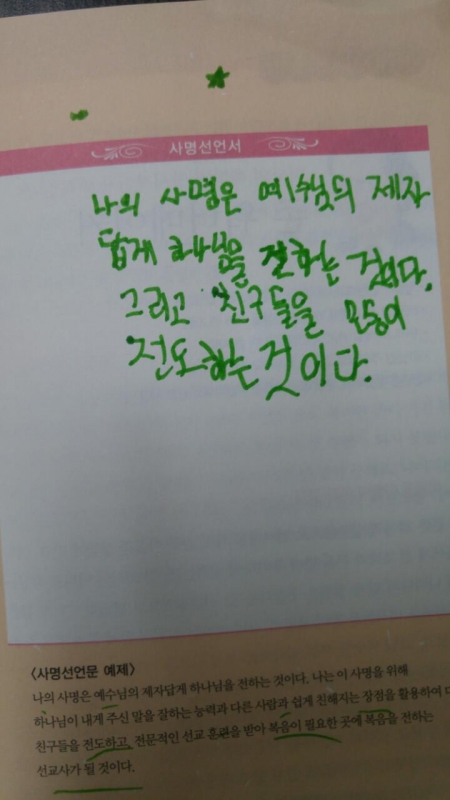 사명선언서
나의 사명은 예수님의 제자
답게 하나님을 전하는 것이다.
그리고 친구들을 모둠이
전도하는 것이다.
<사명선언문 예제>
나의 사명은 예수님의 제자답게 하나님을 전하는 것이다. 나는 이 사명을 위해
하나님이 내게 주신 말을 잘하는 능력과 다른 사람과 쉽게 친해지는 장점을 활용하여
친구들을 전도하고, 전문적인 선교 훈련을 받아 복음이 필요한 곳에 복음을 전하는
선교사가 될 것이다.